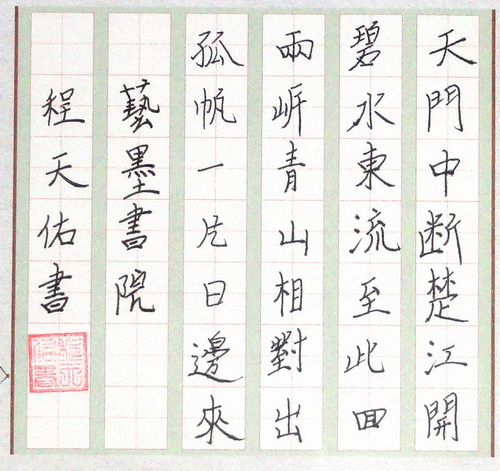 天門中断楚江開
碧水東流至此回
兩岍青山相對出
孤帆一片日邊來
藝墨書院
程天佑書